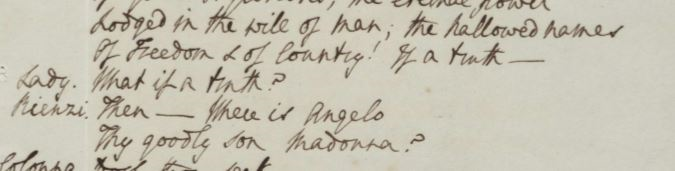 the eternal power
Lodged in the will of man; the hallowed names
Of Freedom & of Country! If a truth —
Lady. What if a truth?
Rienzi. Then — Where is Angelo
Thy goodly son Madonna?
Colonna